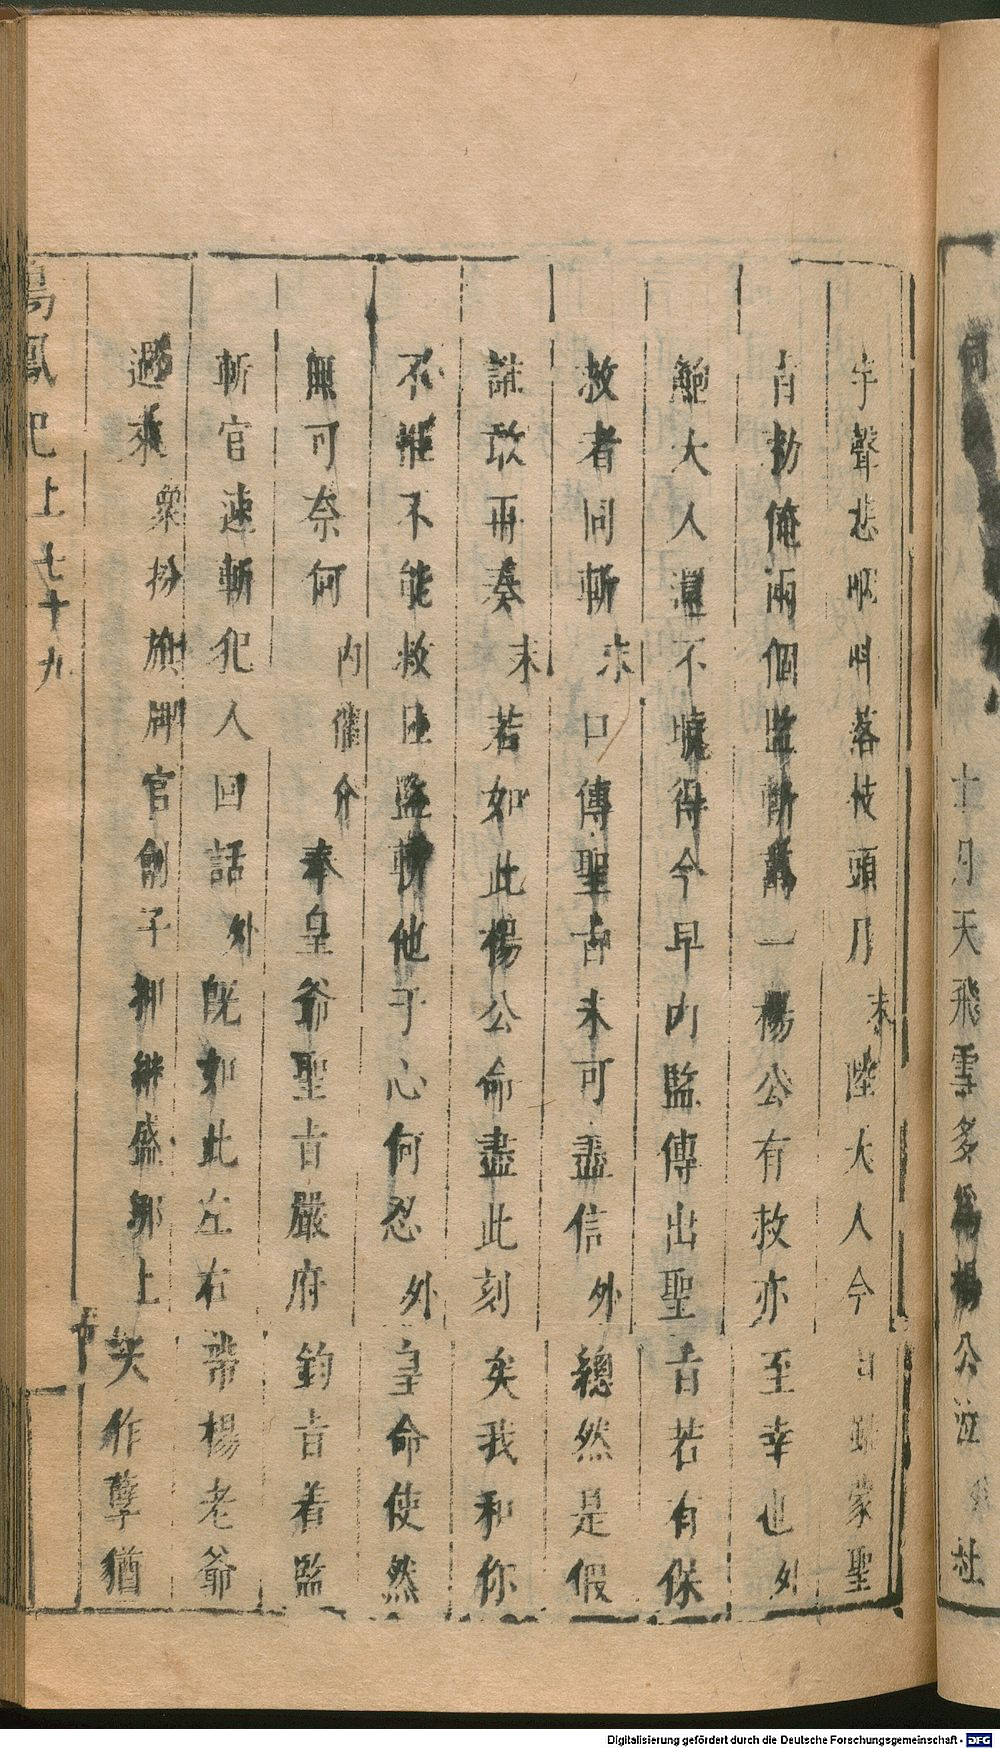 十月天飛雪多爲楊公泣 社
宇聲悲啼叫落枝頭月 末 陸大人今日既蒙聖
旨勑俺兩個監斬萬一楊公有救亦至幸也 外
鮑大人還不曉得今早內監傳出聖旨若有保
救者同斬 末 口傳聖旨未可盡信 外 總然是假
誰敢再奏 末 若如此楊公命盡此刻矣我和你
不惟不能救且監斬他于心何忍 外 皇命使然
無可奈何 內催介 奉皇爺聖旨嚴府鈞旨着監
斬官速斬犯人回話 外 既如此左右帶楊老爺
過來 衆扮旗牌官劊子押綁盛鄒上 天作孽猶
鳴鳳記上 七十九
Digitalisierung gefördert durch die Deutsche Forschungsgemeinschaft - DFG